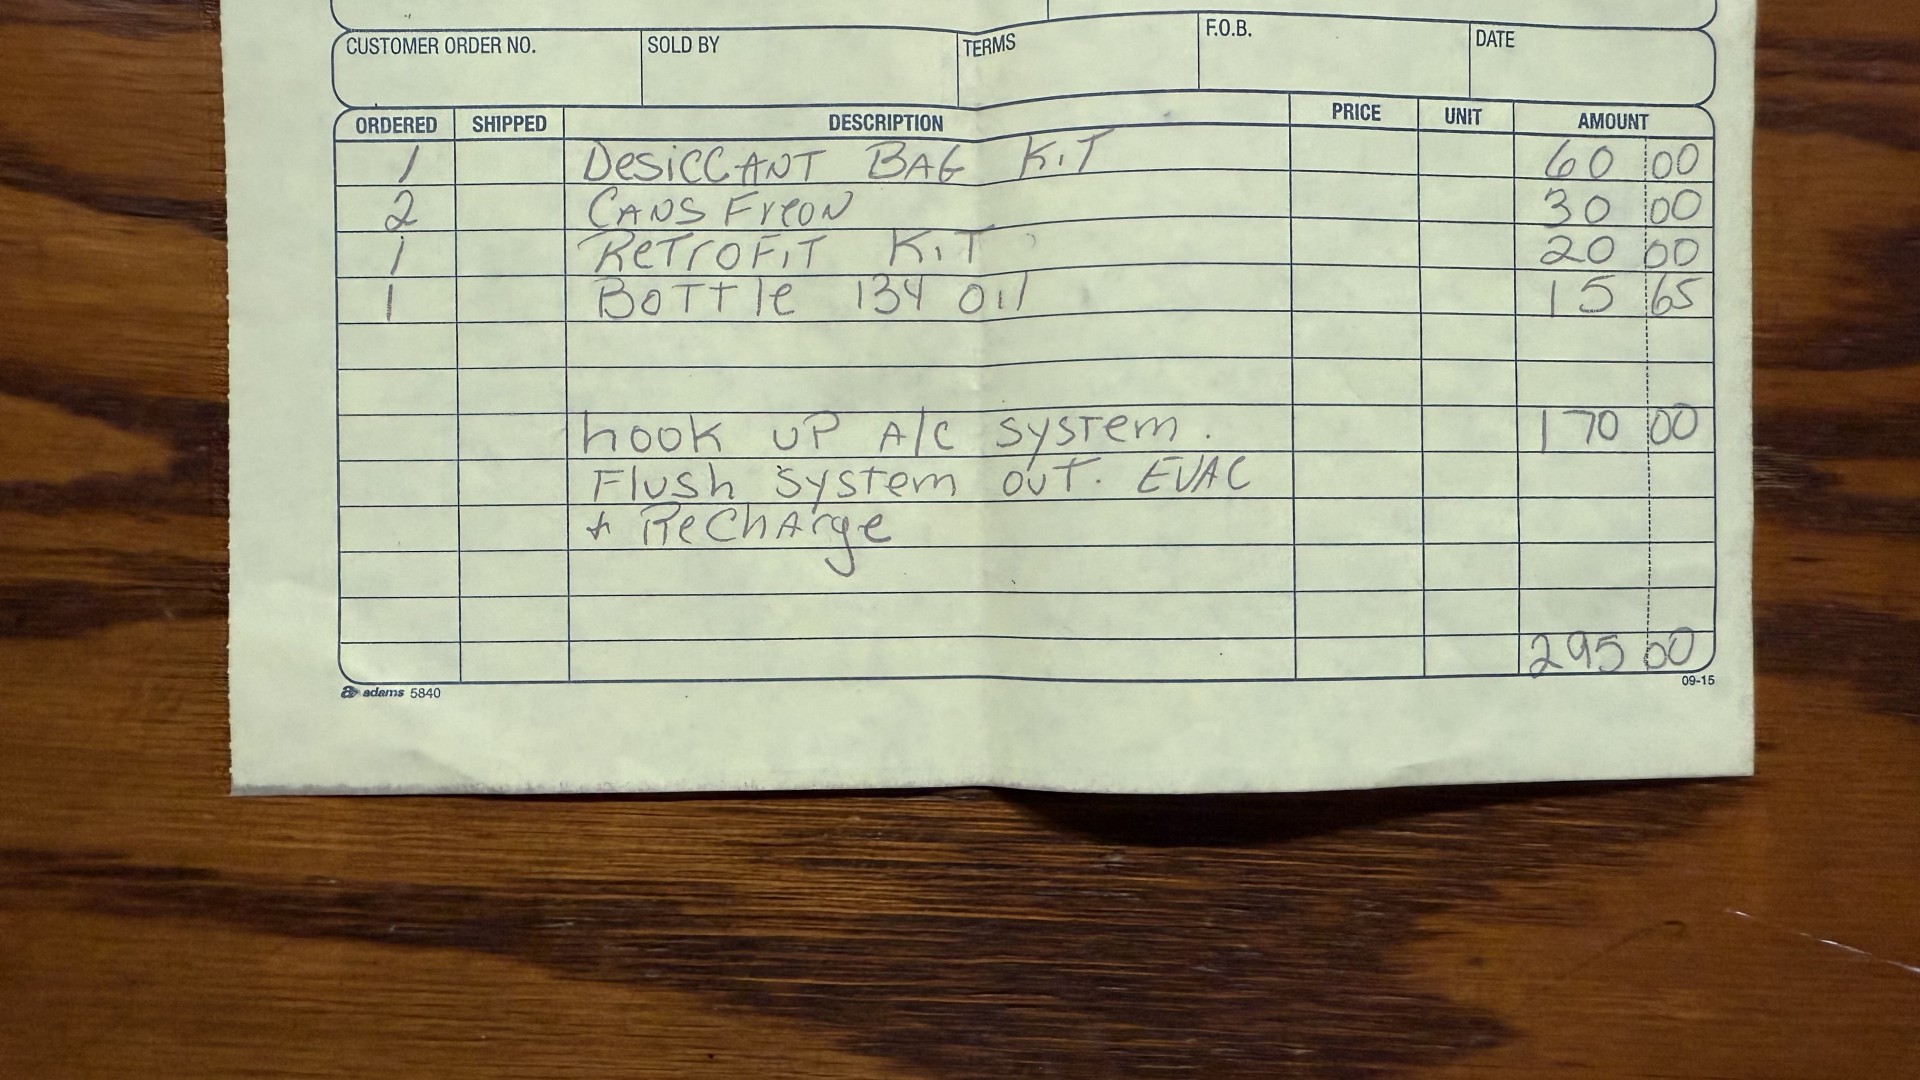 CUSTOMER ORDER NO. SOLD BY TERMS F.O.B. DATE
ORDERED SHIPPED DESCRIPTION PRICE UNIT AMOUNT
1 DesiCCANT BAG KiT 60 00
2 CANS Freon 30 00
1 ReTroFiT KiT 20 00
1 BoTTle 134 oil 15 65
hook uP A/C system. 170 00
Flush system ouT. EVAC
+ ReChArge
295 00
adams 5840 09-15